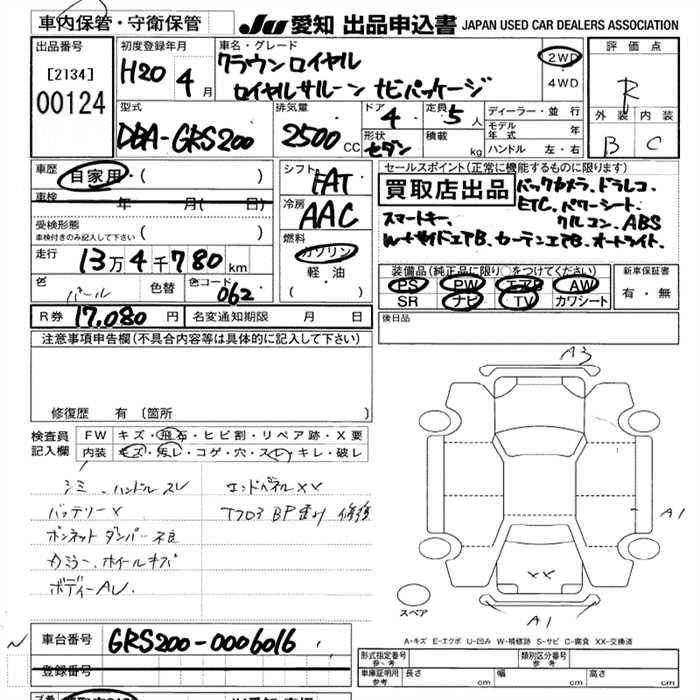 車内保管・守衛保管
JU 愛知 出品申込書 JAPAN USED CAR DEALERS ASSOCIATION
出品番号
[2134]
00124
初度登録年月
H20 4 月
車名・グレード
クラウンロイヤル
ロイヤルサルーン ナビパッケージ
2WD
4WD
評価点
R
外装 内装
B C
型式
DBA-GRS200
排気量
2500 CC
ドア
4
定員
5 人
形状
セダン
積載
kg
ディーラー・並行
モデル年式 年
ハンドル 左・右
車歴
自家用・( )
車検 年 月( 日)
受検形態
車検付きのみ記入して下さい ( )
走行
13万4千780 km
色
パール
色替
色コード
062
シフト
FAT
冷房
AAC
燃料
ガソリン
軽油
( ・ )
セールスポイント(正常に機能するものに限ります)
買取店出品
バックカメラ、ドラレコ、
ETC、パワーシート、
スマートキー、 クルコン、ABS
W+サイドエアB、カーテンエアB、オートライト、
装備品(純正品に限り○をつけてください)
PS PW エアB AW
SR ナビ TV カワシート
新車保証書
有・無
R券 17,080 円
名変通知期限 月 日
後日品
注意事項申告欄(不具合内容等は具体的に記入して下さい)
修復歴 有 〔箇所 〕
検査員
記入欄
FW キズ・飛石・ヒビ割・リペア跡・X要
内装 キズ・汚レ・コゲ・穴・スレ・キレ・破レ
シミ、ハンドルスレ
バッテリーX
ボンネットダンパー不良
カラミー、ホイールキズ
ボディーAU
エンドパネルXX
トランクフロア
A3
A1
XX
A1
スペア
A-キズ E-エクボ U-凹み W-補修跡 S-サビ C-腐食 XX-交換済
車台番号 GRS200-0006016
登録番号
型式指定番号 参考
類別区分番号 参考
車庫証明用 参考
長さ cm
幅 cm
高さ cm